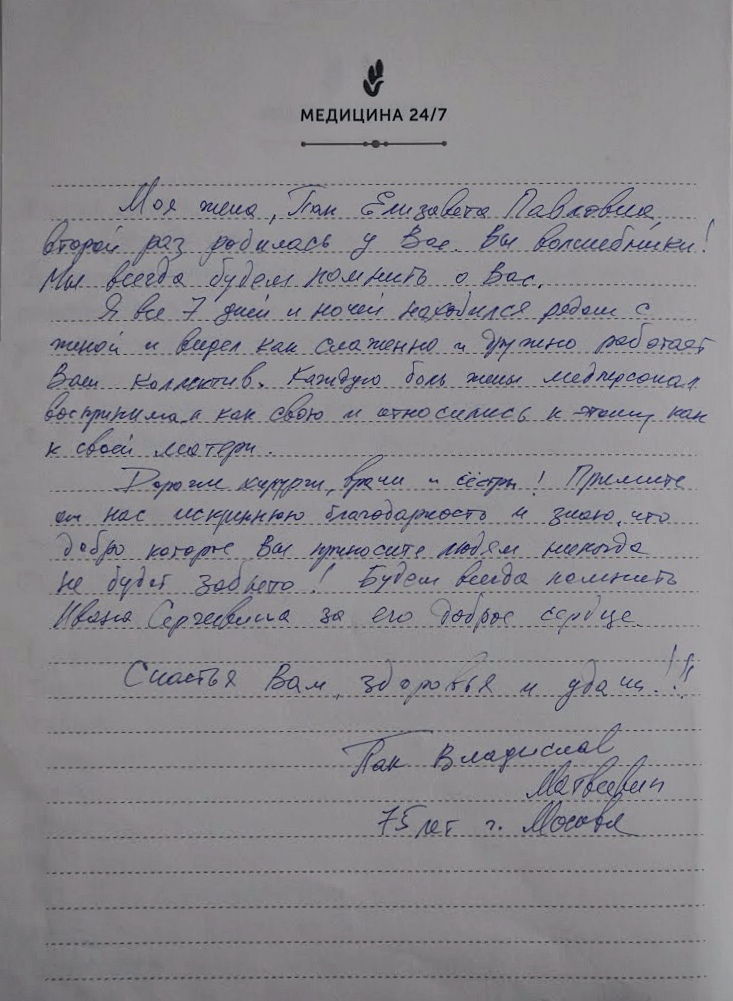 МЕДИЦИНА 24/7
Моя жена, Пак Елизавета Павловна
второй раз родилась у Вас. Вы волшебники!
Мы всегда будем помнить о Вас.
Я все 7 дней и ночей находился рядом с
женой и видел как слаженно и дружно работает
Ваш коллектив. Каждую боль жены медперсонал
воспринимал как свою и относились к этому как
к своей матери.
Дорогие хирурги, врачи и сёстры! Примите
от нас искреннюю благодарность и знаю, что
добро которое Вы приносите людям никогда
не будет забыто! Будем всегда помнить
Ивана Сергеевича за его доброе сердце.
Счастья Вам, здоровья и удачи!!!
Пак Владислав
Матвеевич
75 лет г. Москва